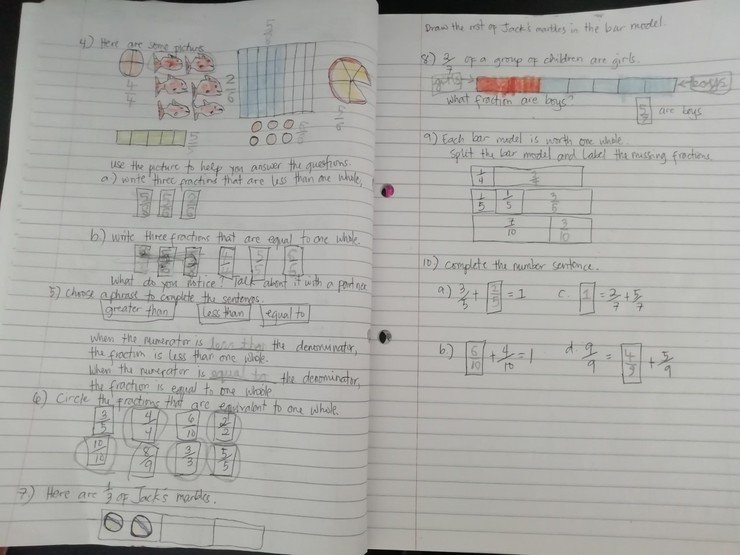 4) Here are some pictures
4/4
2/6
5/6
use the picture to help you answer the questions.
a) write three fractions that are less than one whole,
b.) write three fractions that are equal to one whole.
What do you notice? Talk about it with a partner
5) Choose a phrase to complete the sentences.
greater than less than equal to
when the numerator is less than the denominator,
the fraction is less than one whole.
When the numerator is equal to the denominator,
the fraction is equal to one whole
6) Circle the fractions that are equivalent to one whole.
3/5 4/4 6/10 2/2
10/10 8/9 3/3 5/5
7.) Here are 1/3 of Jack's marbles.
Draw the rest of Jack's marbles in the bar model.
8.) 2/7 of a group of children are girls.
girls boys
What fraction are boys? 5/7 are boys
9.) Each bar model is worth one whole.
Split the bar model and label the missing fractions.
1/4 3/4
1/5 1/5 3/5
7/10 3/10
10) complete the number sentence.
a) 3/5 + 2/5 = 1 c. 1 = 2/7 + 5/7
b.) 6/10 + 4/10 = 1 d. 9/9 = 4/9 + 5/9